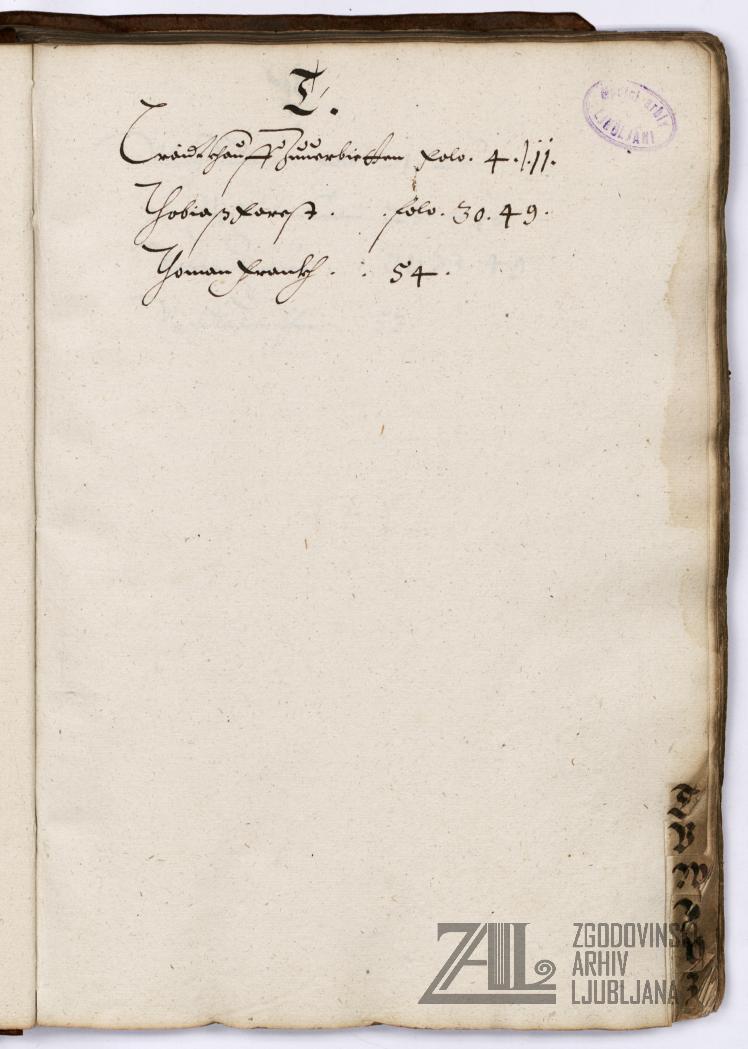 T.
Traidt khauff Zuuerbietten folo. 4. 11.
Thobiaß Forest . . folo. 30. 49.
Thoman Frankh . . 54.
Mestni arhiv
LJUBLJANI
T
V
W
Z
ZAL
ZGODOVINSKI
ARHIV
LJUBLJANA